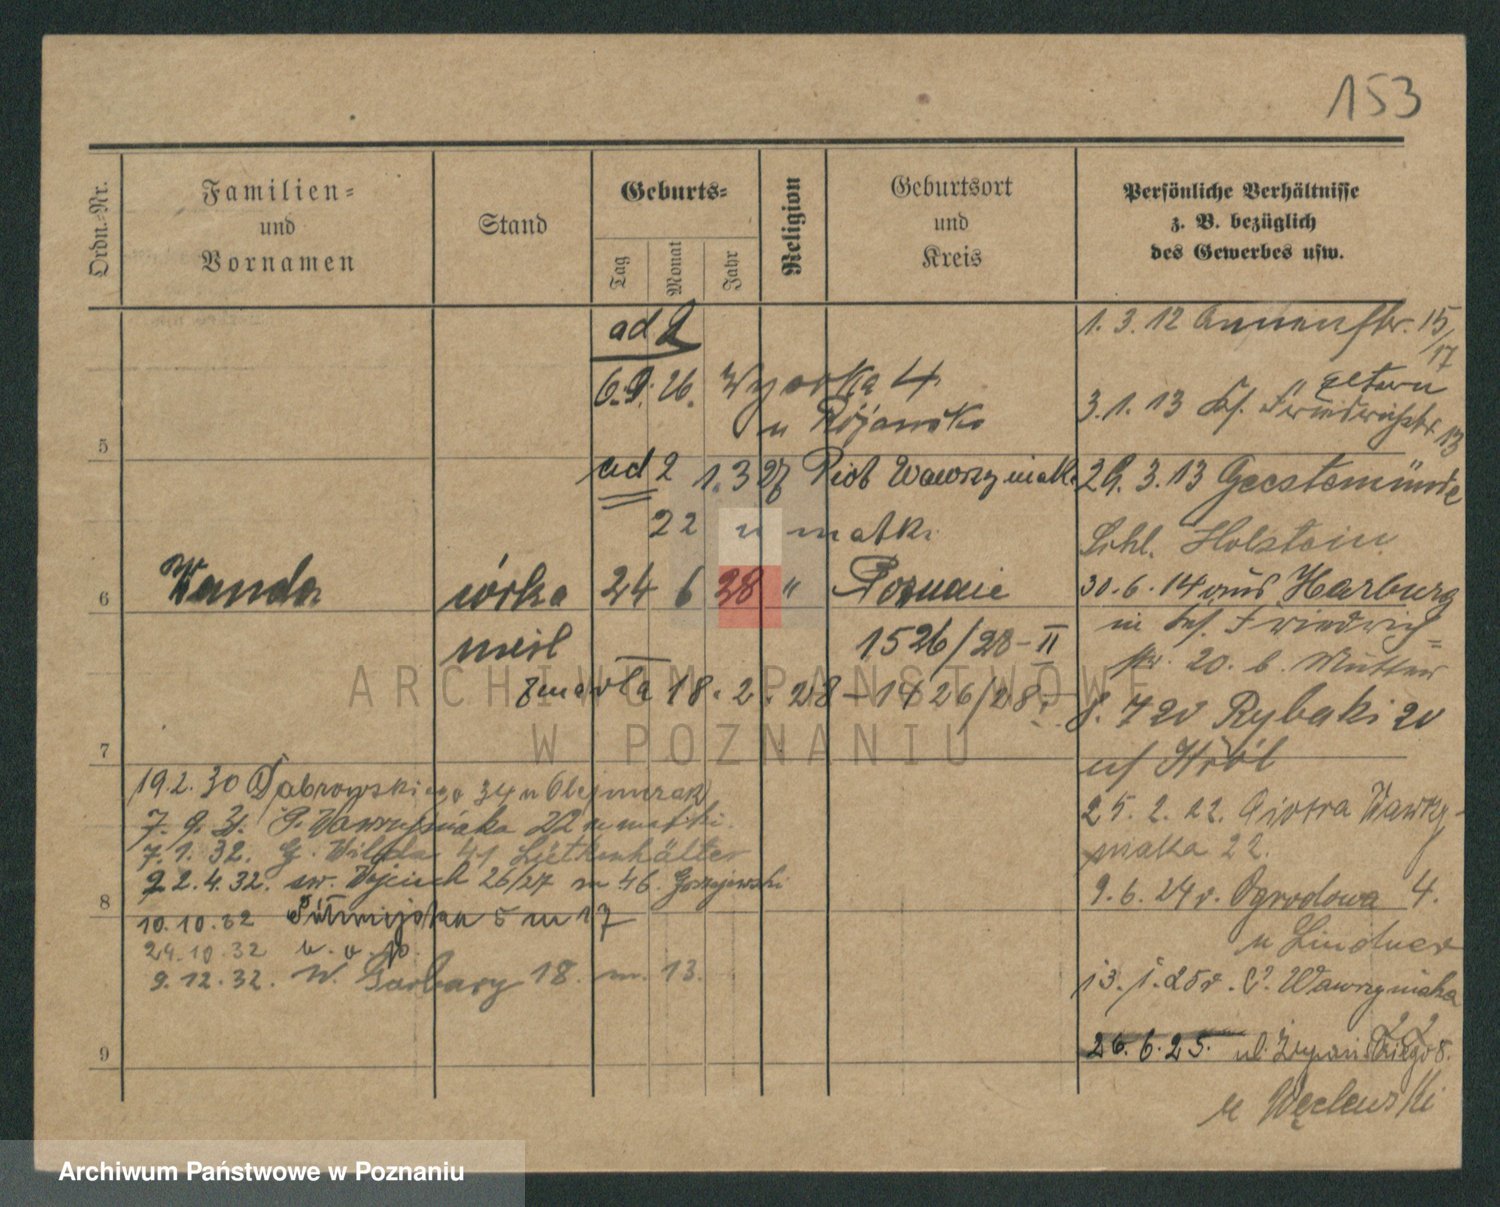 153
Ordn.-Nr.
Familien-
und
Vornamen
Stand
Geburts-
Tag
Monat
Jahr
Religion
Geburtsort
und
Kreis
Persönliche Verhältnisse
z. B. bezüglich
des Gewerbes usw.
ad 2
6.9. 26. Wysoka 4
u Różańsk
5
ad 2 1.3 27 Piotr Wawrzyniaka
22 u matki
6 Wanda córka 24 6 28 " Poznanie
nieśl 1526/28-II
zmarła 18. 2. 28 - 1426/28
7
19.2.30 Dąbrowskiego 34 u Olejniczak
7. 9. 31. P. Wawrzyniaka 22 u matki
7.1.32. G. Wilda 41 Lütkenhälter
8 22.4.32. św. Wojciech 26/27 m 46. Gorzejewski
10.10.32 Półwiejska 5 m 17
24.10.32 w. o. p.
9.12.32. W. Garbary 18. m. 13.
9
1. 3. 12 Annenstr. 15/17
Eltern
3. 1. 13 Friedrichstr 13
29. 3. 13 Geestemünde
Schl. Holstein
30. 6. 14 aus Harburg
in Friedrich-
str. 20. b. Mutter
8. 7 20 Rybaki 20
u/ Król
25. 2. 22. Piotra Wawrzy-
niaka 22.
9. 6. 24 v. Ogrodowa 4.
u Lindner
13. 1. 25 v. P. Wawrzyniaka
22
26. 6. 25. ul. Żupańskiego 8.
u Węclewski
ARCHIWUM PAŃSTWOWE
W POZNANIU
Archiwum Państwowe w Poznaniu